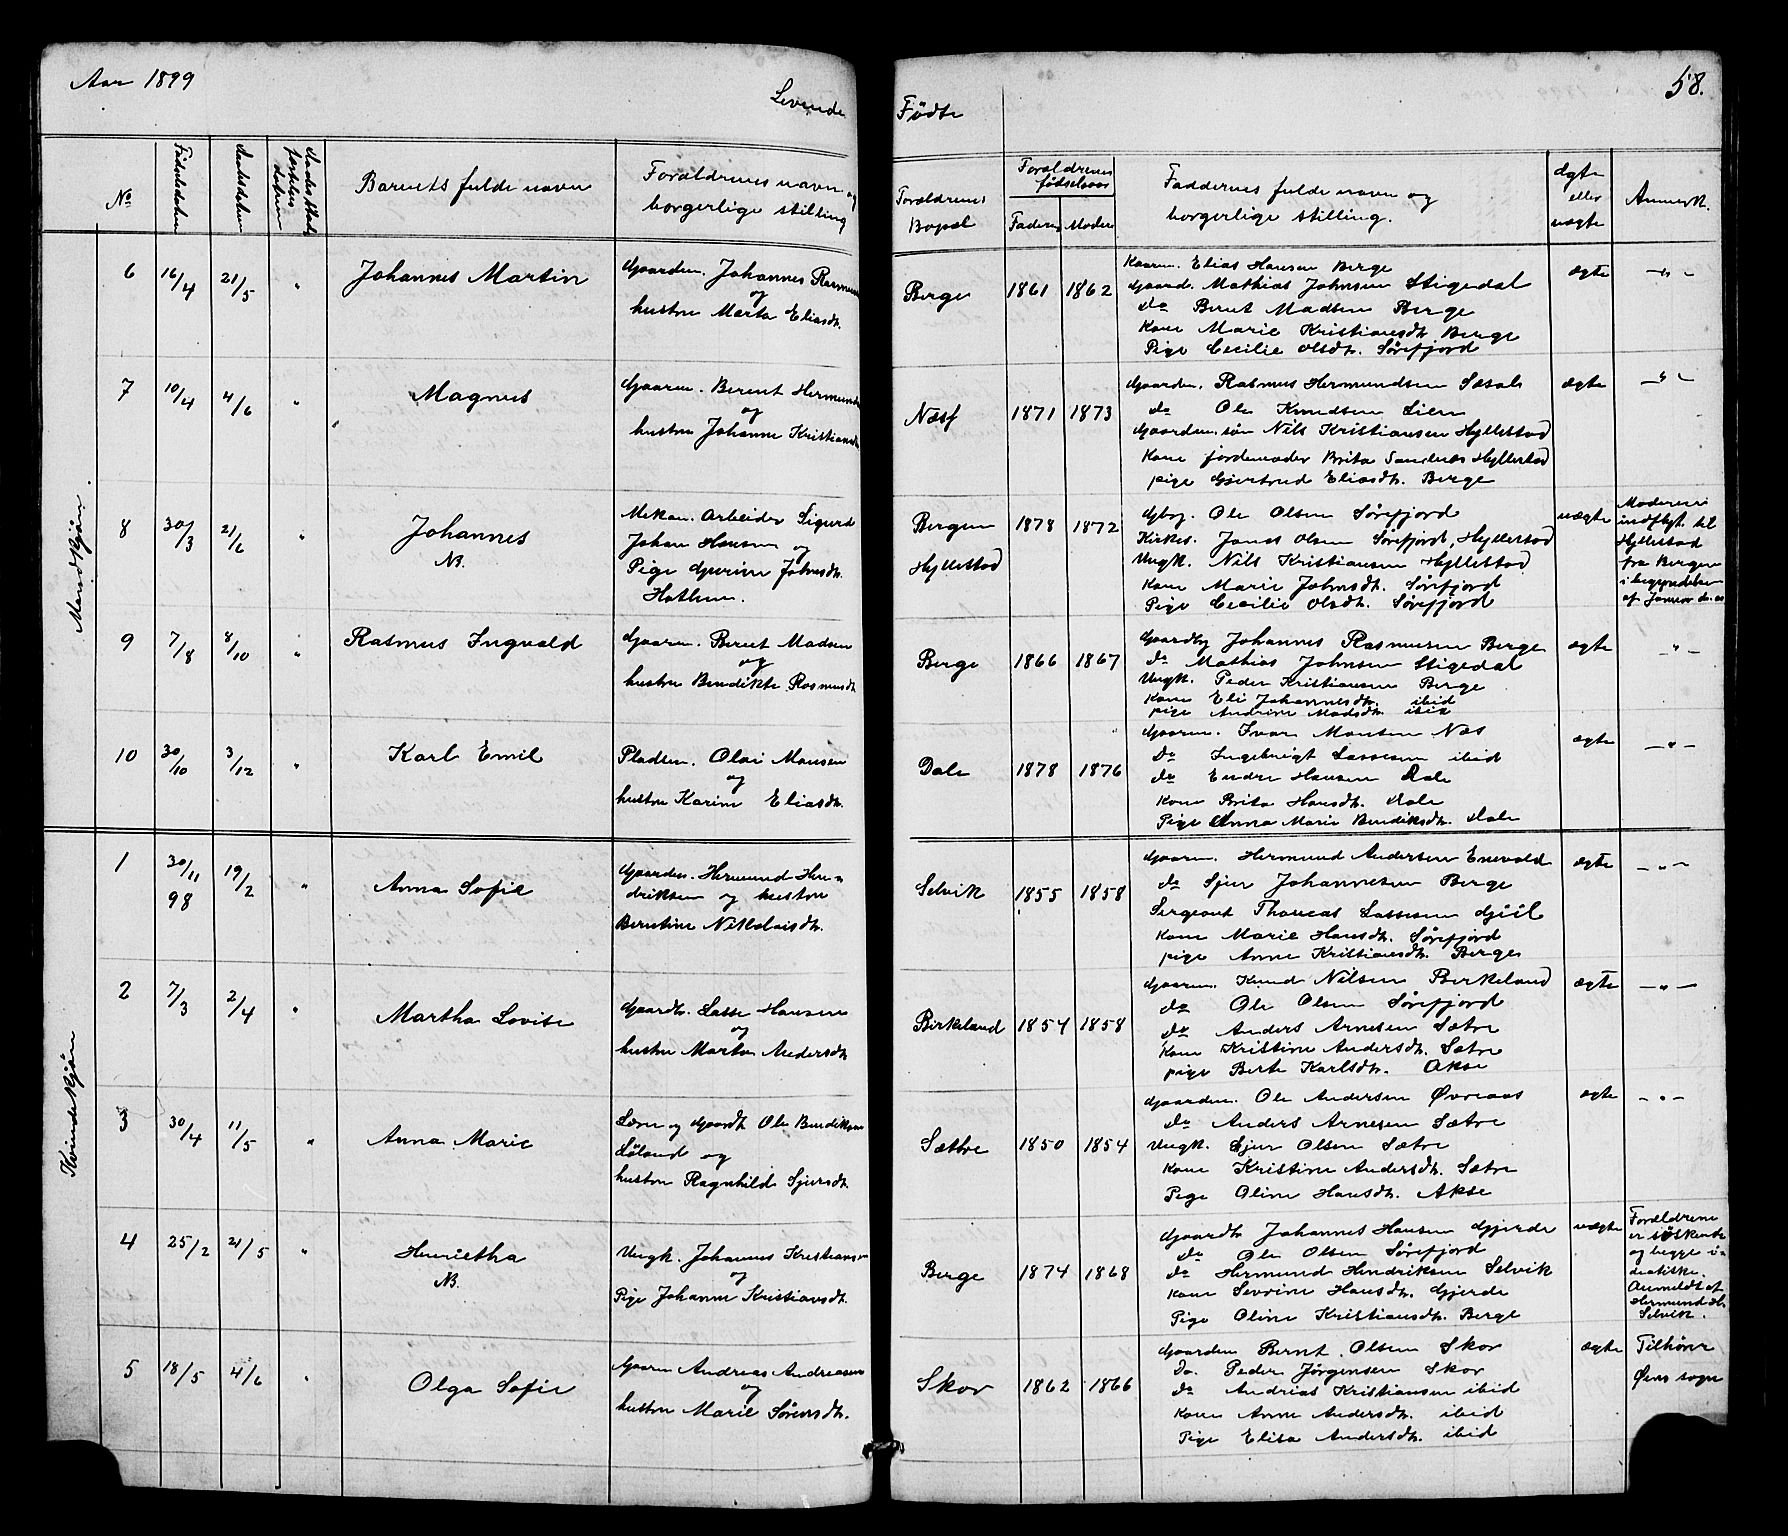 Aar 1899
Levende
Fødte
58.
No
Fødselsdatum
Daabsdatum
Barnets fulde navn
Forældrenes navn og
borgerlige stilling
Forældrenes
Bopæl
Forældrenes
fødselsaar
Faderens
Moderens
Faddernes fulde navn og
borgerlige stilling.
Ægte
eller
uægte
Anmerk.
Mandkjøn.
6 16/4 21/5 " Johannes Martin
Gaardm. Johannes Rasmus
og
hustru Marta Eliasdtr.
Berge 1861 1862
Kaarm. Elias Hansen Berge
Gaard. Mathias Johnsen Stigedal
do Bernt Madsen Berge
Kone Marie Kristiansdtr Berge
Pige Cecilie Olsdtr. Sørefjord
ægte - " -
7 10/4 4/6 " Magnus
Gaarm. Berent Hermunds
og
hustru Johanne Kristians
Næsf 1871 1873
Gaardm. Rasmus Hermundsen
do Ole Knudsen Lien
Gaardm. søn Nils Kristiansen Hyllestad
Kone jordemoder Brita Hyllestad
pige Gjertrud Eliasdtr. Berge
ægte - " -
8 30/3 21/6 " Johannes
NB.
Mekan. Arbeider Sigurd
Johan Hansen og
Pige Gurine Johnsdtr.
Hatlem.
Bergen
Hyllestad
1878 1872
Gbrg. Ole Olsen Sørefjord
Kirkes. Jonas Olsen Sørefjord, Hyllestad
Ungk. Nils Kristiansen Hyllestad
Kone Marie Johnsdtr. Sørefjord
Pige Cecilie Olsdtr. Sørefjord
uægte
Moderen
indflyt. til
Hyllestad
fra Bergen
i begyndelsen
af Januar d. a.
9 7/8 8/10 " Rasmus Ingvald
Gaarm. Bernt Madsen
og
hustru Bendikte Rasmusdtr
Berge 1866 1867
Gaardbr Johannes Rasmusen Berge
do Mathias Johnsen Stigedal
Ungk. Peder Kristiansen Berge
Kone Eli Johannesdtr. ibid
pige Andrine Madsdtr. ibid
ægte - " -
10 30/10 3/12 " Karl Emil
Pladsm. Olai Monsen
og
hustru Karine Eliasdtr.
Dale 1878 1876
Gaarm. Ivar Monsen Næs
Do Ingebrigt Lassesen ibid
do Endre Hansen Dale
Kone Brita Hansdtr. Dale
Pige Anna Marie Bendiksdtr. Dale
ægte - " -
Kvindekjøn
1 30/11 98 19/2 " Anna Sofie
Gaardm. Hermund Hen-
driksen og hustru
Berntine Nikolaisdtr.
Selvik 1855 1858
Gaarm. Hermund Andersen Enevold
do Sjur Johannesen Berge
Sergeant Thomas Lassesen Gjiil
Kone Marie Hansdtr. Sørefjord
pige Anne Kristiansdtr. Berge
ægte - " -
2 7/3 2/4 " Martha Lovise
Gaardbr. Lasse Hansen
og
hustru Marta Andersdtr
Birkeland 1854 1858
Gaarm. Knud Nilsen Birkeland
do Ole Olsen Sørefjord
do Anders Arnesen Sætre
Kone Kristine Andersdtr. Sætre
pige Berte Karlsdtr. Akse
ægte - " -
3 30/4 11/5 " Anna Marie
og Gaardbr Ole Bendiksen
Løland og
hustru Ragnhild Sjursdtr.
Sætre 1850 1854
Gaardm. Ole Andersen Øvreaas
do Anders Arnesen Sætre
Ungk. Sjur Olsen Sætre
Kone Kristine Andersdtr. Sætre
Pige Oline Hansdtr. Akse
ægte - " -
4 25/2 21/5 " Henrietha
NB.
Ungk. Johannes Kristiansen
og
Pige Johanne Kristiansdtr.
Berge 1874 1868
Gaardbr Johannes Hansen Gjerde
do Ole Olsen Sørefjord
do Hermund Hendriksen Selvik
Kone Severine Hansdtr. Gjerde
Pige Oline Kristiansdtr. Berge
uægte
Forældrene
er søskende
og begge i-
diotiske.
Anmeldt af
Hermund H.
Selvik.
5 18/5 4/6 " Olga Sofie
Gaarm Andreas Andreasen
og
hustru Marie Sørensdtr.
Skor 1862 1866
Gaardm Bernt Olsen Skor
Do. Peder Jørgensen Skor
do Andrias Kristiansen ibid
Kone Anne Andersdtr. ibid
Pige Elisa Andersdtr. ibid
ægte
Tilhører
Øens sogn